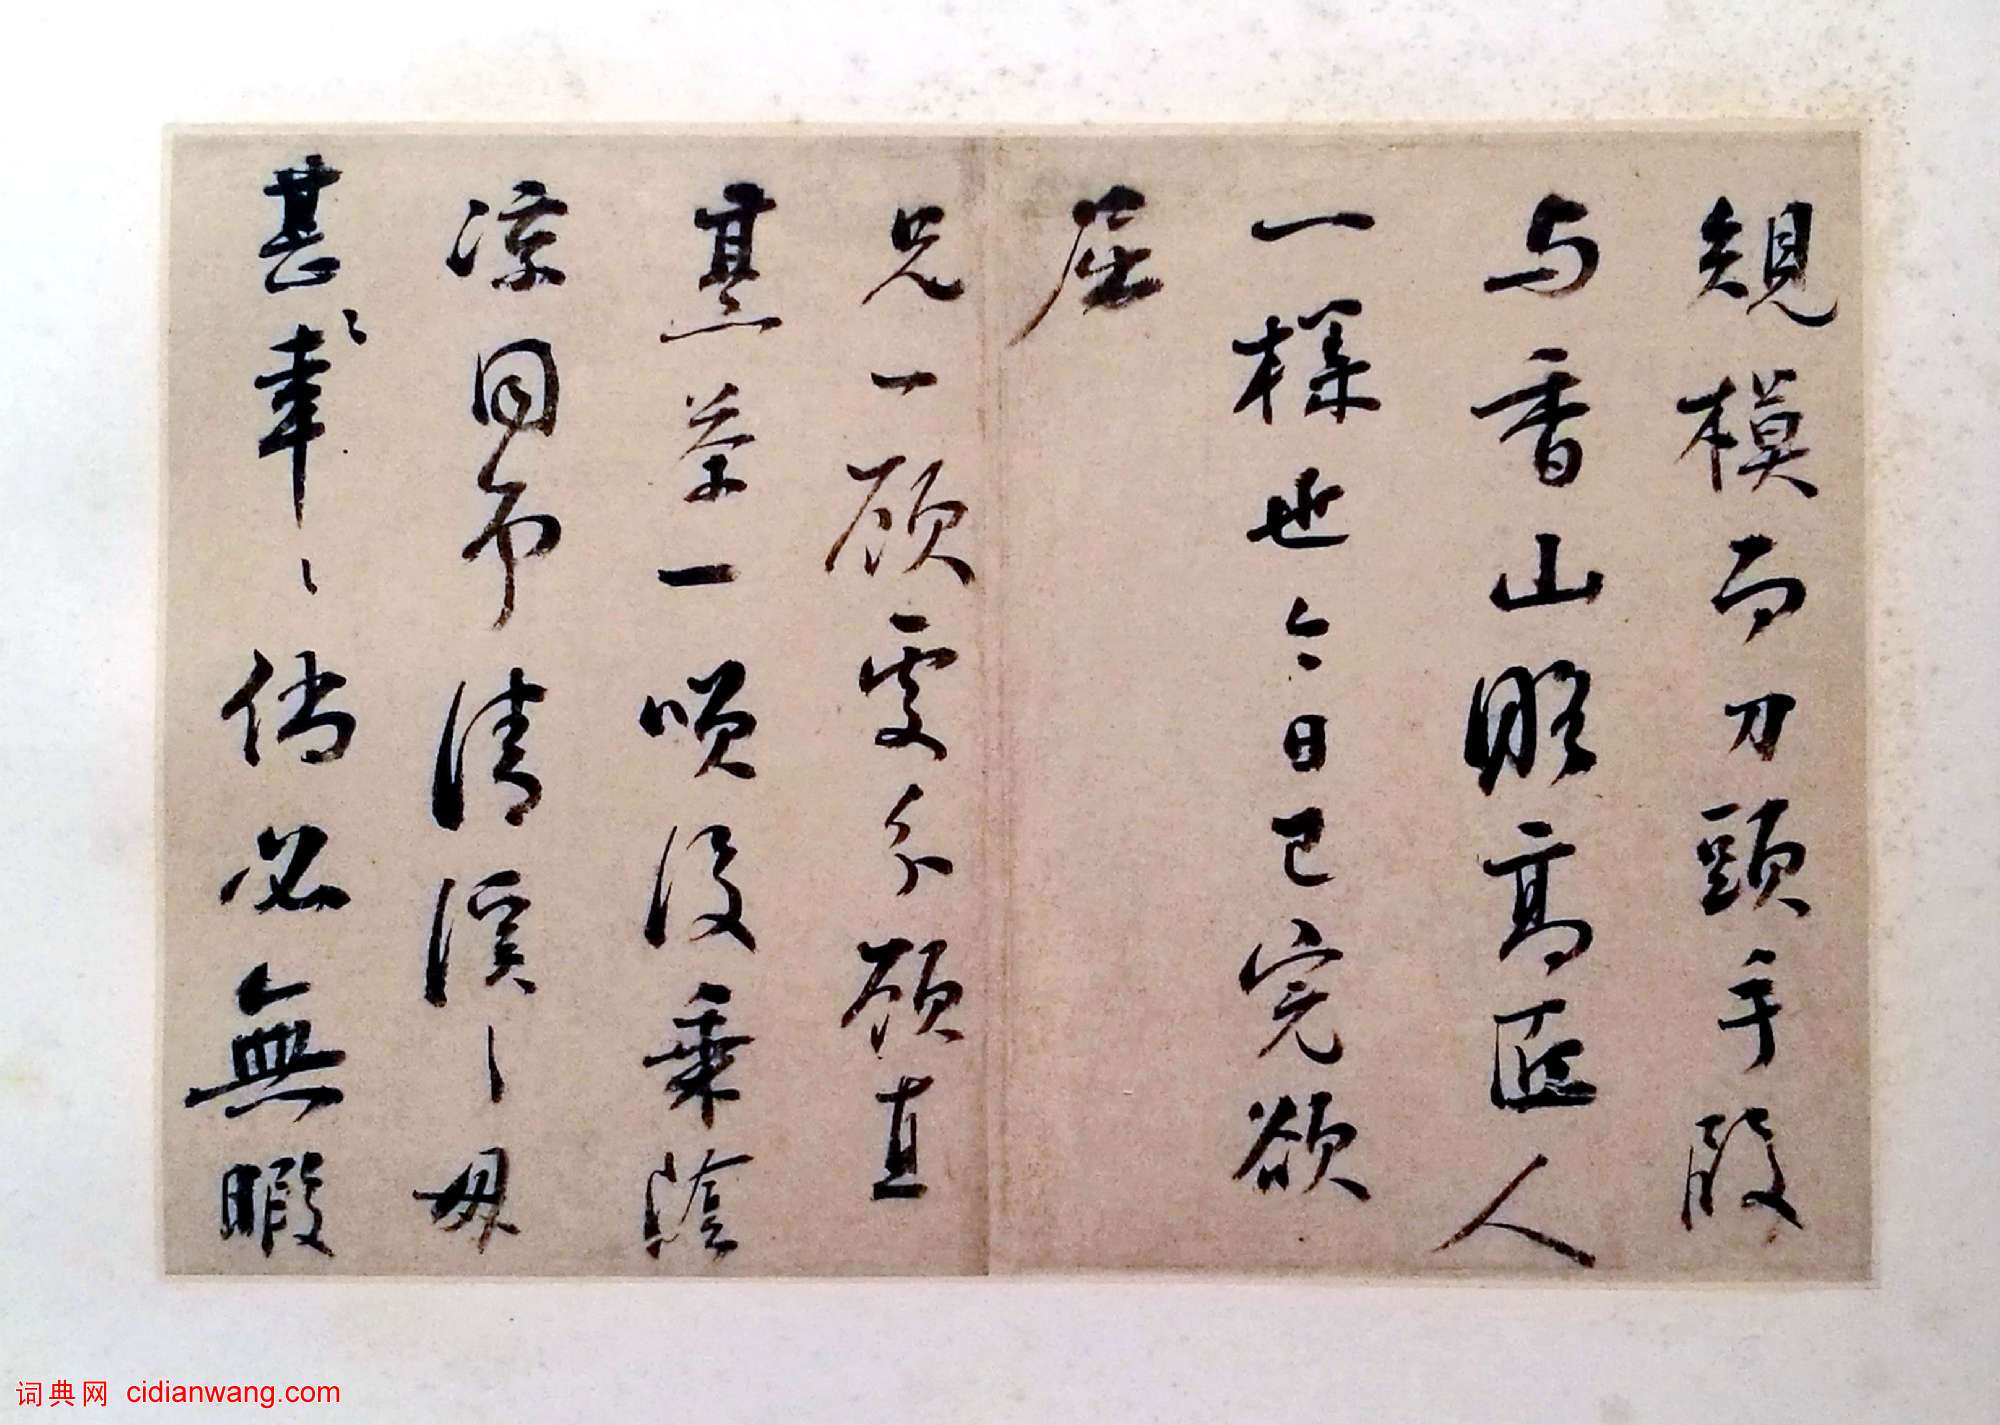 規模而刀頭手段
与香山眼高匠人
一樣也今日已完欲
屈
兄一顧更不顧直
熏茶一啜後乘陰
涼同步清溪之毋
甚幸甚幸倘必無暇
词典网 cidianwang.com